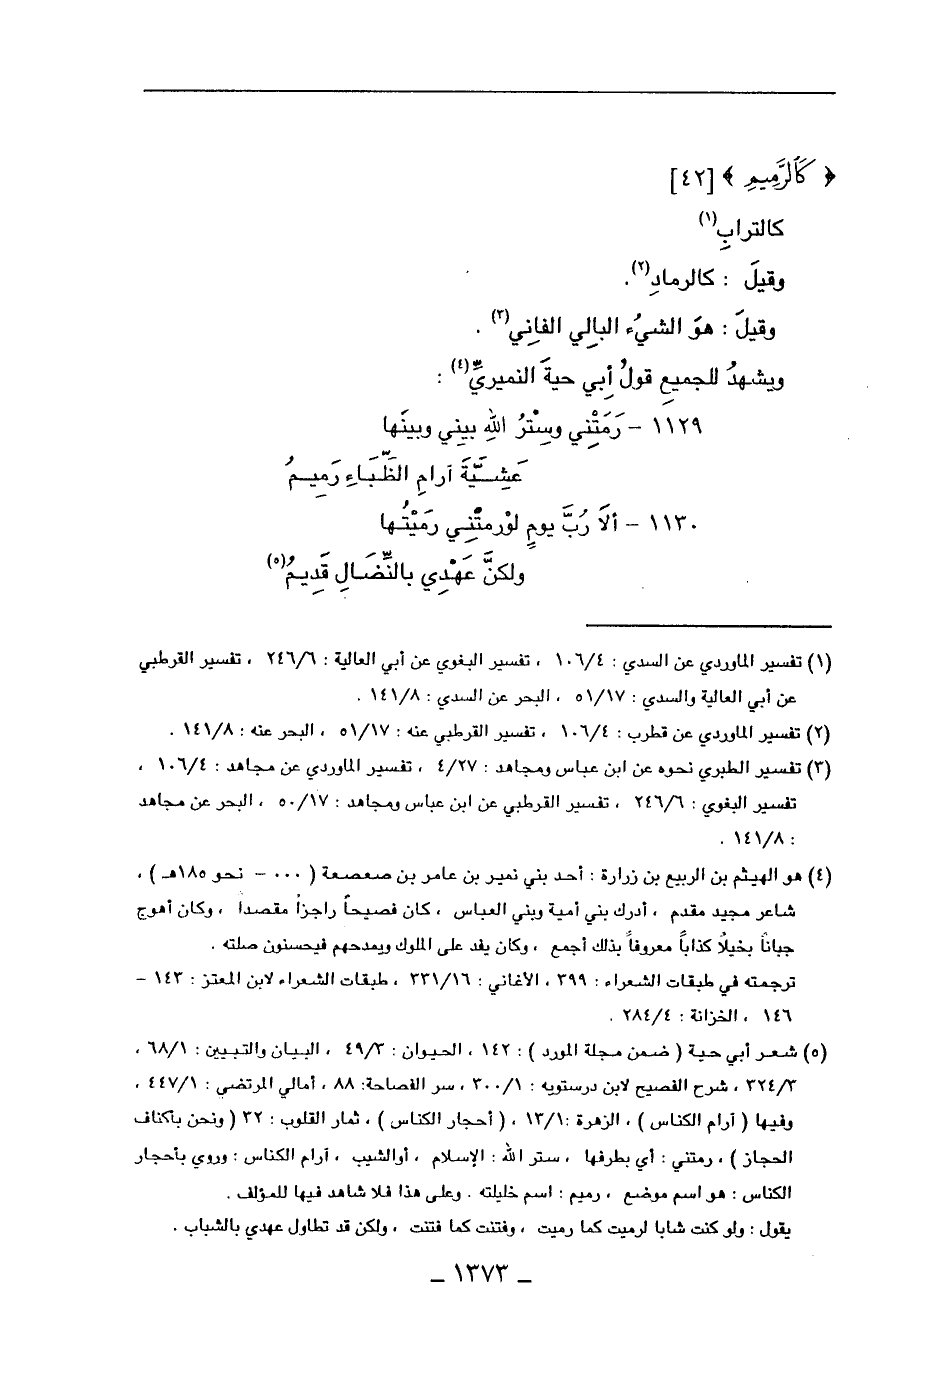 ﴿ كَٱلرَّمِيمِ ﴾ [٤٢]
كالترابِ(١)
وقيلَ : كالرمادِ(٢).
وقيلَ : هوَ الشيُء البالِي الفانِي(٣) .
ويشهدُ للجميعِ قولُ أبِي حيةَ النميريِّ(٤) :
١١٢٩ – رَمَتْنِي وسِتْرُ اللهِ بينِي وبينَها
عَشِـــيَّةَ آرامِ الظِّبَـاءِ رَمِيــمُ
١١٣٠ – ألَا رُبَّ يومٍ لوْرمتْنِـي رمَيْتُـها
ولكنَّ عَهْدِي بالنِّضَـالِ قَدِيـمُ(٥)
(١) تفسير الماوردي عن السدي : ١٠٦/٤ ، تفسير البغوي عن أبي العالية : ٢٤٦/٦ ، تفسير القرطبي
عن أبي العالية والسدي : ٥١/١٧ ، البحر عن السدي : ١٤١/٨ .
(٢) تفسير الماوردي عن قطرب : ١٠٦/٤ ، تفسير القرطبي عنه : ٥١/١٧ ، البحر عنه : ١٤١/٨ .
(٣) تفسير الطبري نحوه عن ابن عباس ومجاهد : ٤/٢٧ ، تفسير الماوردي عن مجاهد : ١٠٦/٤ ،
تفسير البغوي : ٢٤٦/٦ ، تفسير القرطبي عن ابن عباس ومجاهد : ٥٠/١٧ ، البحر عن مجاهد
: ١٤١/٨ .
(٤) هو الهيثم بن الربيع بن زرارة : أحد بني نمير بن عامر بن صعصعة ( ٠٠٠ – نحو ١٨٥هـ ) ،
شاعر مجيد مقدم ، أدرك بني أمية وبني العباس ، كان فصيحاً راجزاً مقصدا ، وكان أهوج
جباناً بخيلاً كذاباً معروفاً بذلك أجمع ، وكان يفد على الملوك ويمدحهم فيحسنون صلته .
ترجمته في طبقات الشعراء : ٣٩٩ ، الأغاني : ٣٣١/١٦ ، طبقات الشعراء لابن المعتز : ١٤٣ –
١٤٦ ، الخزانة : ٢٨٤/٤ .
(٥) شعـر أبي حية ( ضمن مجلة المورد ) : ١٤٢ ، الحيوان : ٤٩/٣ ، البيان والتبيين : ٦٨/١ ،
٣٢٤/٣ ، شرح الفصيح لابن درستويه : ٣٠٠/١ ، سر الفصاحة: ٨٨ ، أمالي المرتضي : ٤٤٧/١ ،
وفيها ( آرام الكناس ) ، الزهرة :١٣/١ ، ( أحجار الكناس ) ، ثمار القلوب : ٣٢ ( ونحن بأكناف
الحجاز ) ، رمتني : أي بطرفها ، ستر الله : الإسلام ، أوالشيب ، آرام الكناس : وروي بأحجار
الكناس : هو اسم موضع ، رميم : اسم خليلته . وعلى هذا فلا شاهد فيها للمؤلف .
يقول : ولو كنت شابا لرميت كما رميت ، وفتنت كما فتنت ، ولكن قد تطاول عهدي بالشباب .
ــ ١٣٧٣ ــ